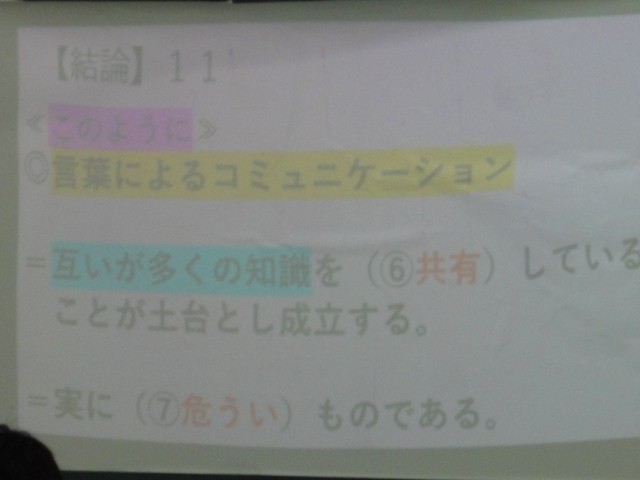 【結論】１１
≪このように≫
◎言葉によるコミュニケーション
＝互いが多くの知識を（⑥共有）している
ことが土台とし成立する。
＝実に（⑦危うい）ものである。